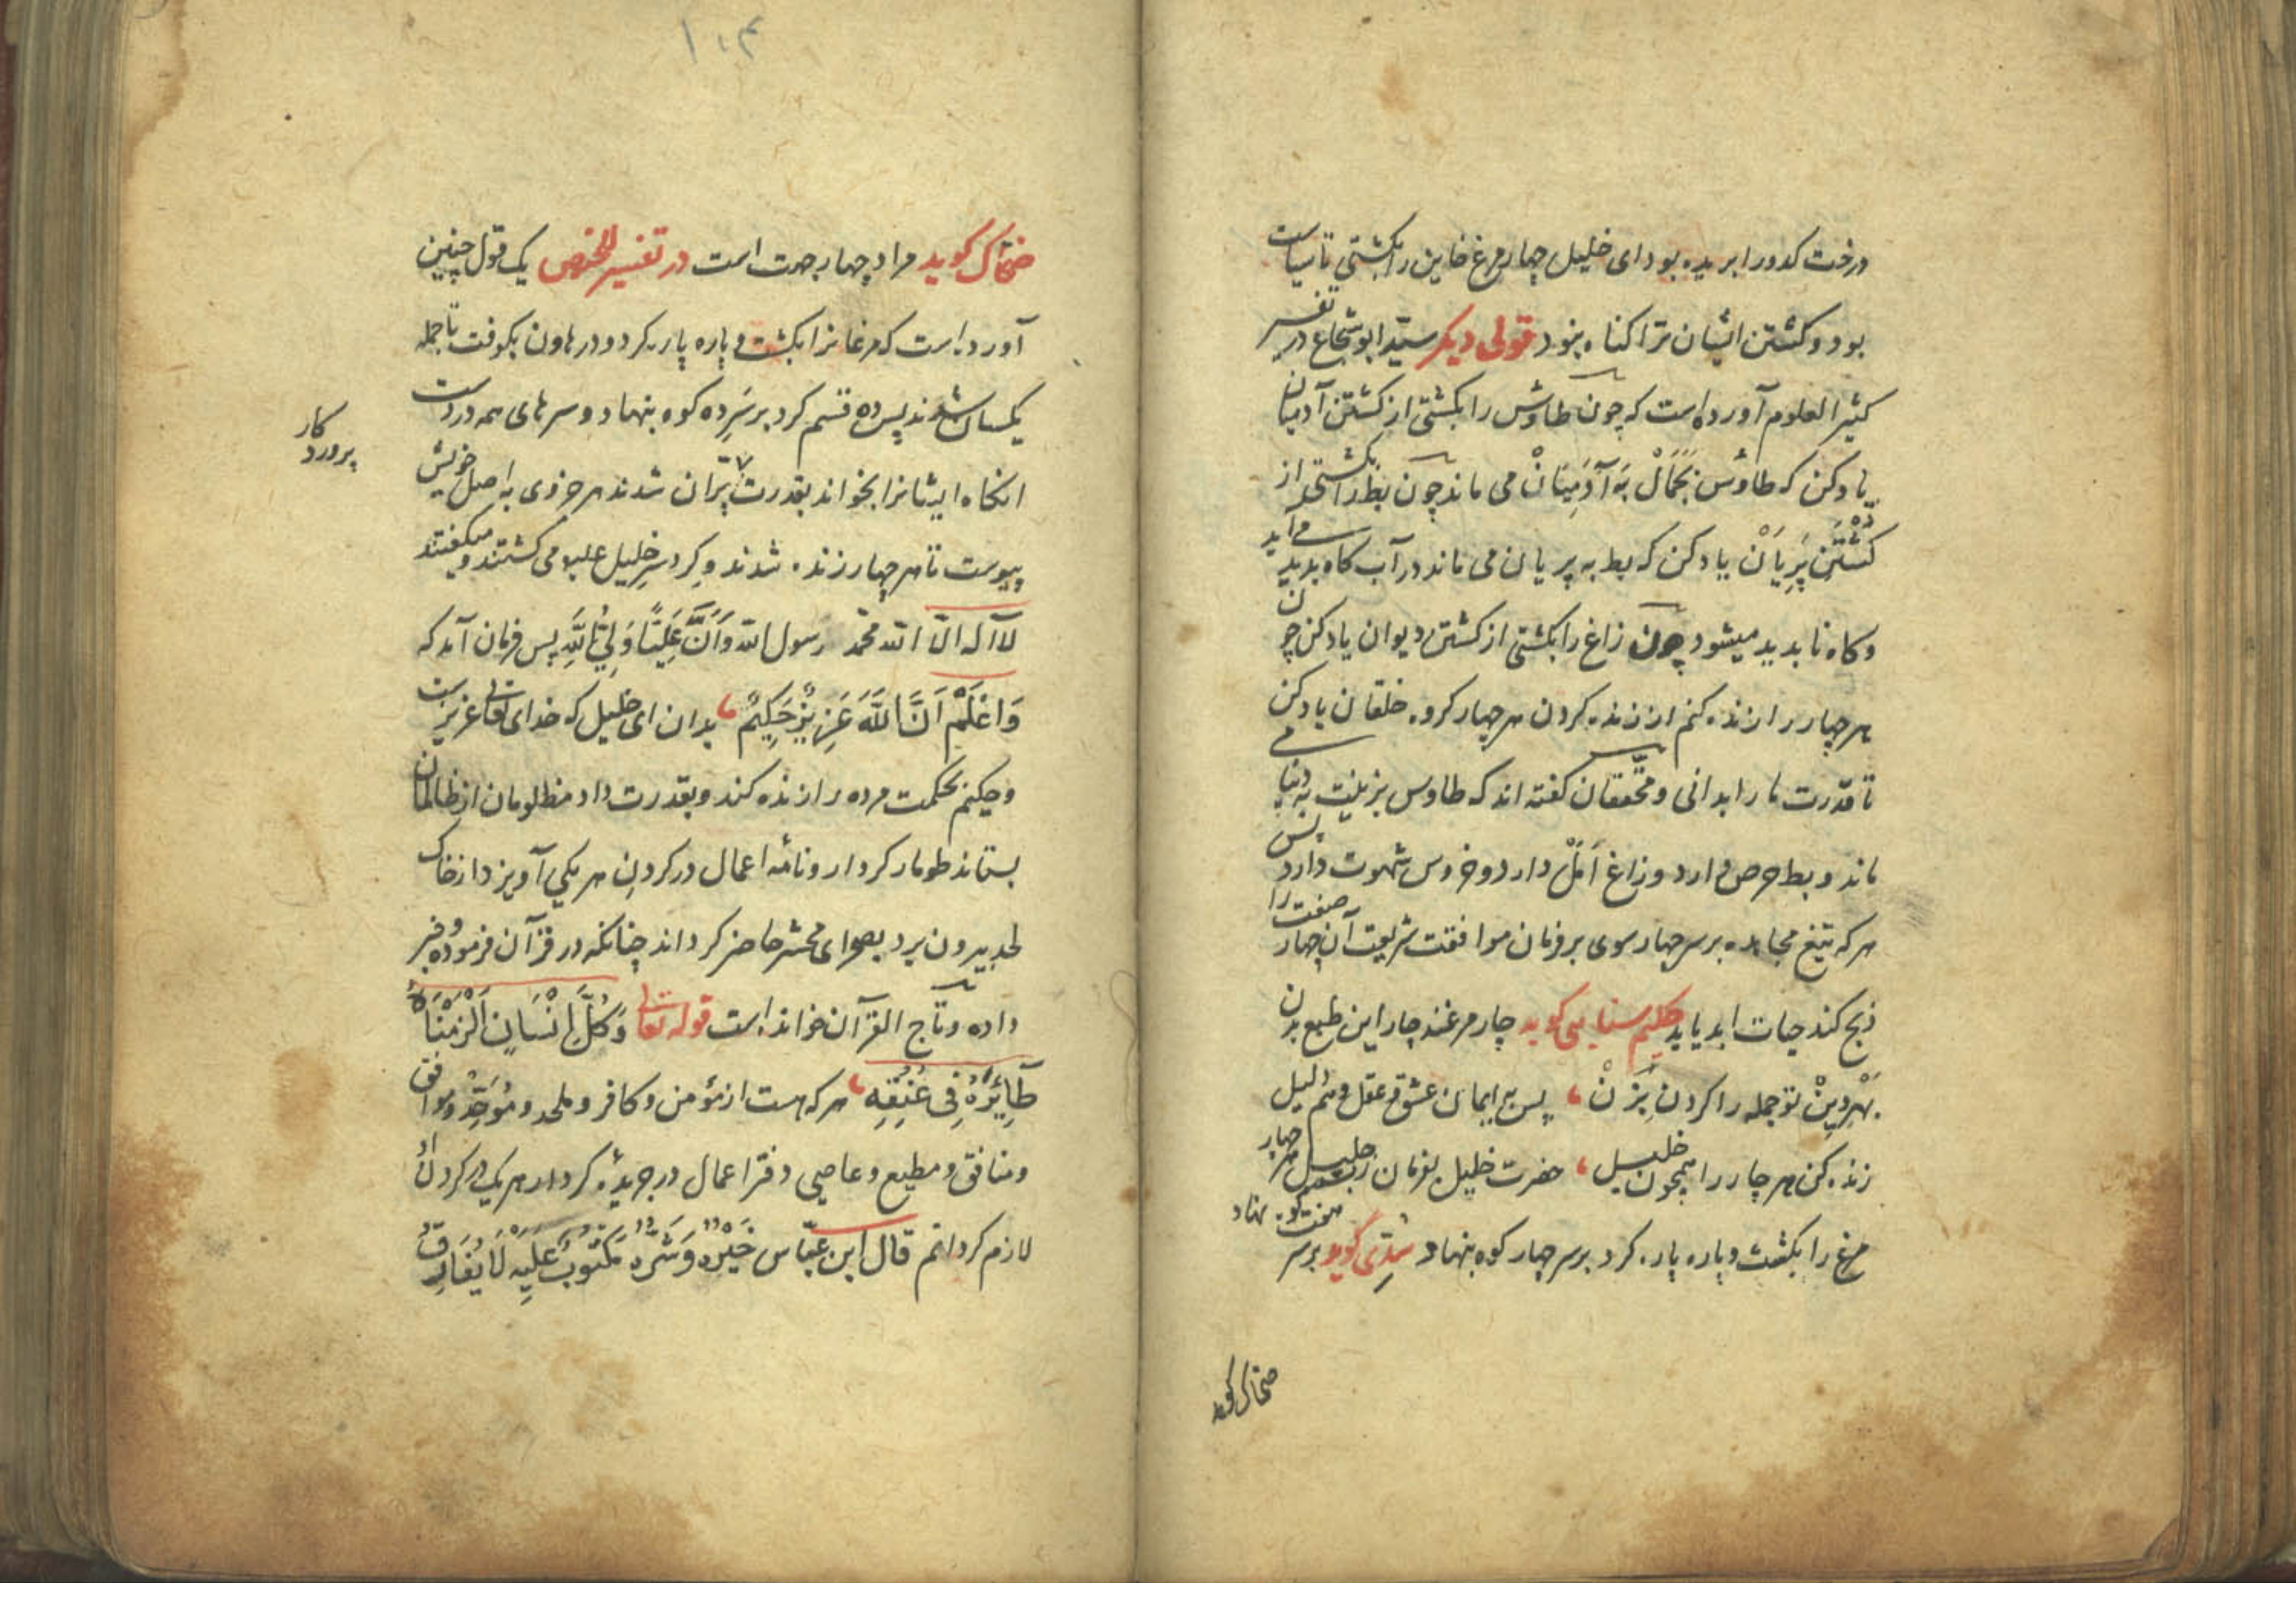 درخت کدو را بریده بود ای خلیل چهار مرغ خاین را بکشتی تا سیاست
بود و کشتن ایشان ترا کناه نبود قولی دیکر سید ابو شجاع در تفسیر
کثیر العلوم آورده است که چون طاوس را بکشتی از کشتن آدمیان
یاد کن که طاوس بجمال به آدمیان می ماند چون بط را بکشتی از
کشتن پریان یاد کن که بط به پریان می ماند در آب کاه بدید می آید
و کاه نا بدید میشود چون زاغ را بکشتی از کشتن دیوان یاد کن چون
هر چهار را زنده کنم از زنده کردن هر چهار کروه خلقان یاد کن
تا قدرت ما را بدانی و محققان کفته اند که طاوس بزینت به دنیا می
ماند و بط حرص دارد و زاغ امل دارد و خروس شهوت دارد پس
هر که تیغ مجاهده بر سر چهار سوی بر فرمان موافقت شریعت آن چهار صفت را
ذبح کند حیات ابد یابد حکیم سنایی کوید چار مرغند چار این طبع بدن
بهر دین تو جمله را کردن بزن پس به ایمان عشق و عقل و هم دلیل
زنده کن هر چار را همچون خلیل حضرت خلیل بفرمان رب جلیل هر چهار
مرغ را بکشت و پاره پاره کرد بر سر چهار کوه بنهاد سدی کوید بر سر هفت کوه نهاد
ضحاک کوید
۱۰۴
ضحاک کوید مراد چهار جهت است در تفسیر ملخص یک قول چنین
آورده است که مرغانرا بکشت و پاره پاره کرد و در هاون بکوفت تا جمله
یکسان شدند پس ده قسم کرد بر سر ده کوه بنهاد و سرهای همه در دست
آنکاه ایشانرا بخواند بقدرت پران شدند هر جزوی به اصل خویش
پروردکار
پیوست تا هر چهار زنده شدند و کرد سر خلیل علیه می کشتند و میکفتند
لا اله الا الله محمد رسول الله و ان علیا ولی الله پس فرمان آمد که
وَاعْلَمْ اَنَّ اللَّهَ عَزِیزٌ حَکِیمٌ بدان ای خلیل که خدای تعالی عزیز است
و حکیم بحکمت مرده را زنده کند و بقدرت داد مظلومان از ظالمان
بستاند طومار کردار و نامه اعمال در کردن هر یکی آویزد از خاک
لحد بیرون برد بصحرای محشر حاضر کرداند چنانکه در قرآن فرموده و خبر
داده و تاج القرآن خوانده است قوله تعالی وَکُلَّ اِنْسَانٍ اَلْزَمْنَاهُ
طَائِرَهُ فِی عُنُقِهِ هر که هست از مؤمن و کافر و ملحد و موحد و موافق
و منافق و مطیع و عاصی دفتر اعمال در جریده کردار هر یک در کردن او
لازم کردانم قال ابن عباس خَیْرُهُ وَشَرُّهُ مَکْتُوبٌ عَلَیْهِ لَا یُفَارِقُ